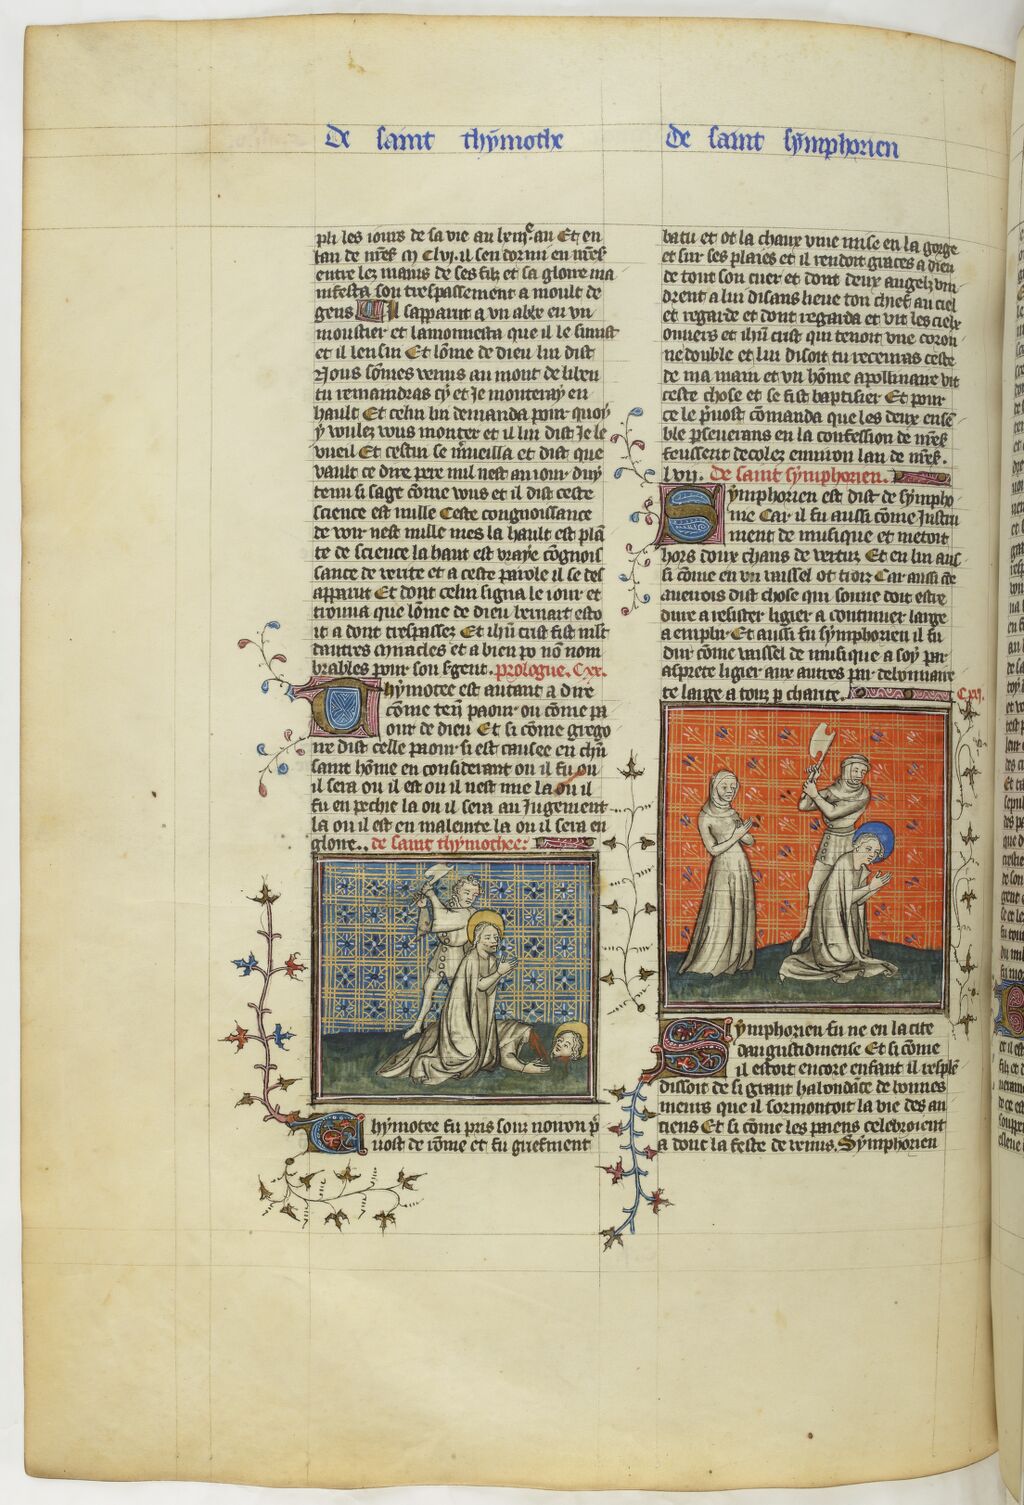 De saint thymothe
pli les iours de sa vie au lxiiii.e an Et en
lan de nr̄es m clvi. il sendormi en nr̄es
entre lez mains de ses filz et sa gloire ma
nifesta son trespassement a moult de
gens Il sapparut a vn abbe en vn
moustier et lamonnesta que il le suiuist
et il lensiui Et lōme de dieu lui dist
Nous sōmes venus au mont de liben
tu remaindras cy et Je monteray en
hault Et celui lui demanda pour quoy
y voulez vous monter et il lui dist Je le
vueil Et cestui se m̄ueilla et dist que
vault ce dire pere nul nest au iour duy
tenu si sage cōme vous et il dist ceste
science est nulle Ceste congnoissance
de voir nest nulle mes la hault est plā
te de science la haut est vraye cōgnois
sance de verite et a ceste parole il se des
apparut Et dont celui signa le iour et
trouua que lōme de dieu bernart esto
it a dont trespassez Et ih̄u crist fist m̄lt
dautres miracles et a bien po nō nom
brables pour son s̄gent. prologue. Cxx.
Thymotee est autant a dire
cōme ten̄ paour ou cōme pa
our de dieu Et si cōme grego
ire dist celle paour si est causee en ch̄ū
saint hōme en considerant ou il fu ou
il sera ou il est ou il nest mie la ou il
fu en pechie la ou il sera au Jugement
la ou il est en maleinte la ou il sera en
gloire. de saint thymothee:
Thymotee fu pris souz noiron p̄
uost de rōme et fu griefment
De saint symphorien
batu et ot la chaux viue mise en la gorge
et sur ses plaies et il rendoit graces a dieu
de tout son cuer et dont deux angelz vin
drent a lui disans lieue ton chief au ciel
et regarde et dont regarda et vit les cielx
ouuers et ih̄u crist qui tenoit vne coron
ne double et lui disoit tu receuras ceste
de ma main et vn hōme apollinaire vit
ceste chose et se fist baptisier Et pour
ce le p̄uost cōmanda que les deux ensē
ble p̄seuerans en la confession de nr̄es
feussent decolez enuiron lan de nr̄es.
lvii. De saint symphorien.
Symphorien est dist de sympho
nie Car il fu aussi cōme Instru
ment de musique et metoit
hors doux chans de vertuz Et en lui aus
si cōme en vn vaissel ot troiz Car aussi cōe
auerrois dist chose qui sonne doit estre
dure a resister ligier a continuer large
a emplir Et aussi fu symphorien il fu
dur cōme vaissel de musique a soy par
asprete ligier aux autres par debonnaire
te large a touz p charite. Cxxi.
Symphorien fu ne en la cite
daugustidinense Et si cōme
il estoit encore enfant il resplē
dissoit de si grant habondāce de bonnes
meurs que il sormontoit la vie des an
ciens Et si cōme les paiens celebroient
a dont la feste de venus. Symphorien